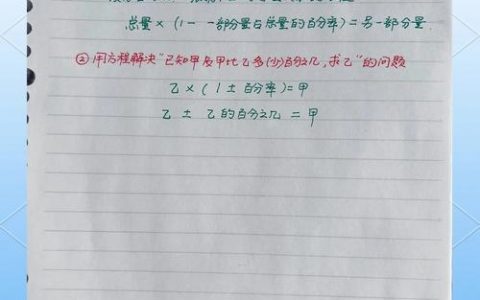 总量×(1-一部分量占总量的百分率)=另一部分量
②用方程解决"已知甲及甲比乙多(少)百分之几,求乙"的问题
乙×(1±百分率)=甲
乙±乙的百分之几=甲